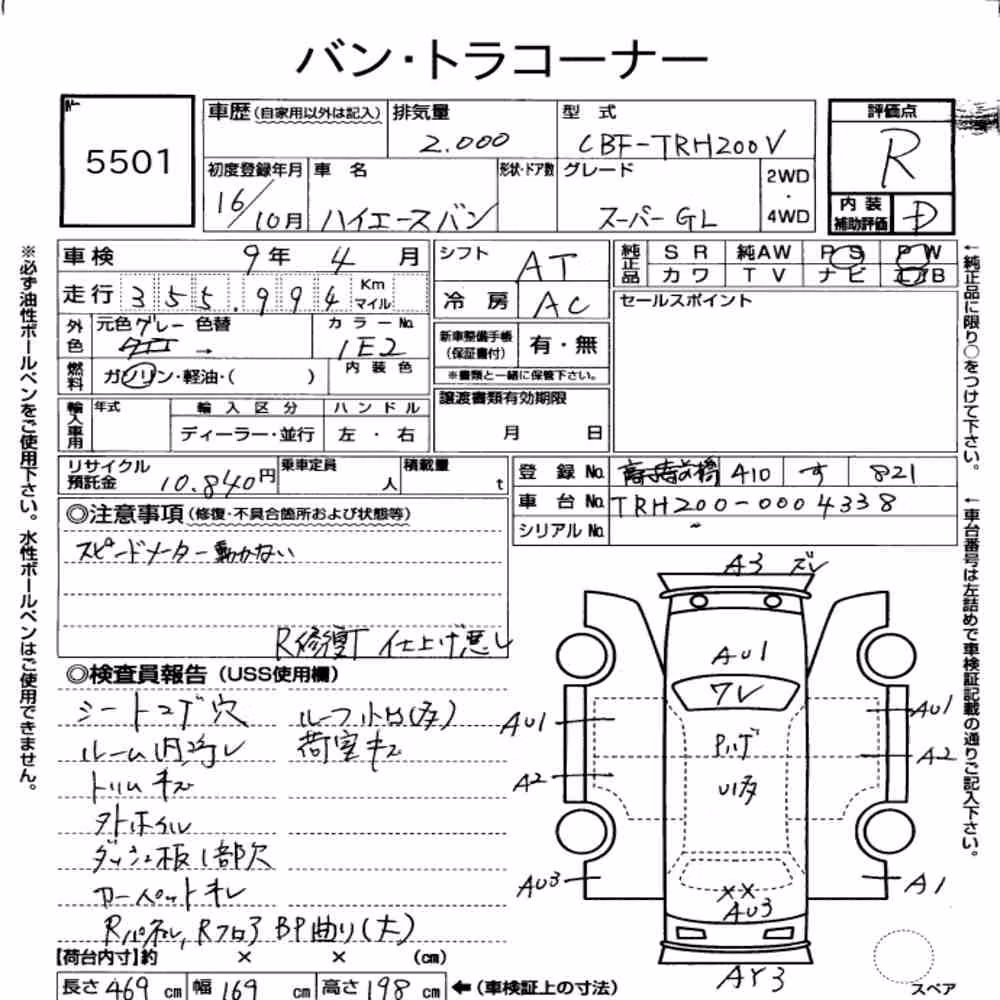 バン・トラコーナー
No.
5501
車歴 (自家用以外は記入)
排気量 2.000
型式 CBF-TRH200V
評価点 R
内装補助評価 D
初度登録年月 16/10月
車名 ハイエースバン
形状・ドア数
グレード スーパーGL
2WD・4WD
車検 9年 4月
走行 355.994 Km マイル
外色 元色 グレー 色替 →
カラーNo. 1E2
燃料 ガソリン・軽油・( )
内装色
輸入車用 年式
輸入区分 ディーラー・並行
ハンドル 左・右
シフト AT
冷房 AC
新車整備手帳(保証書付) 有・無
※書類と一緒に保管下さい。
譲渡書類有効期限 月 日
純正品 SR 純AW PS PW
カワ TV ナビ エアB
セールスポイント
リサイクル預託金 10.840円
乗車定員 人
積載量 t
登録No. 410 す 821
車台No. TRH200-0004338
シリアルNo.
◎注意事項 (修復・不具合箇所および状態等)
スピードメーター動かない
R修復了 仕上げ悪し
◎検査員報告 (USS使用欄)
シートコゲ穴 ルーフ凹(多)
ルーム内汚レ 荷室キズ
トリムキズ
外ホイル
ダッシュ板1部欠
カーペットキレ
Rパネル, Rフロア BP曲り(大)
【荷台内寸】約 × × (cm)
長さ 469 cm 幅 169 cm 高さ 198 cm ←(車検証上の寸法)
A3 ズレ
AU1
ワレ
AU1 AU1
Pハゲ
A2 A2
U多
AU3 A1
××
AU3
AY3
スペア
※必ず油性ボールペンをご使用下さい。水性ボールペンはご使用できません。
←純正品に限り○をつけて下さい。
←車台番号は左詰めで車検証記載の通りご記入下さい。